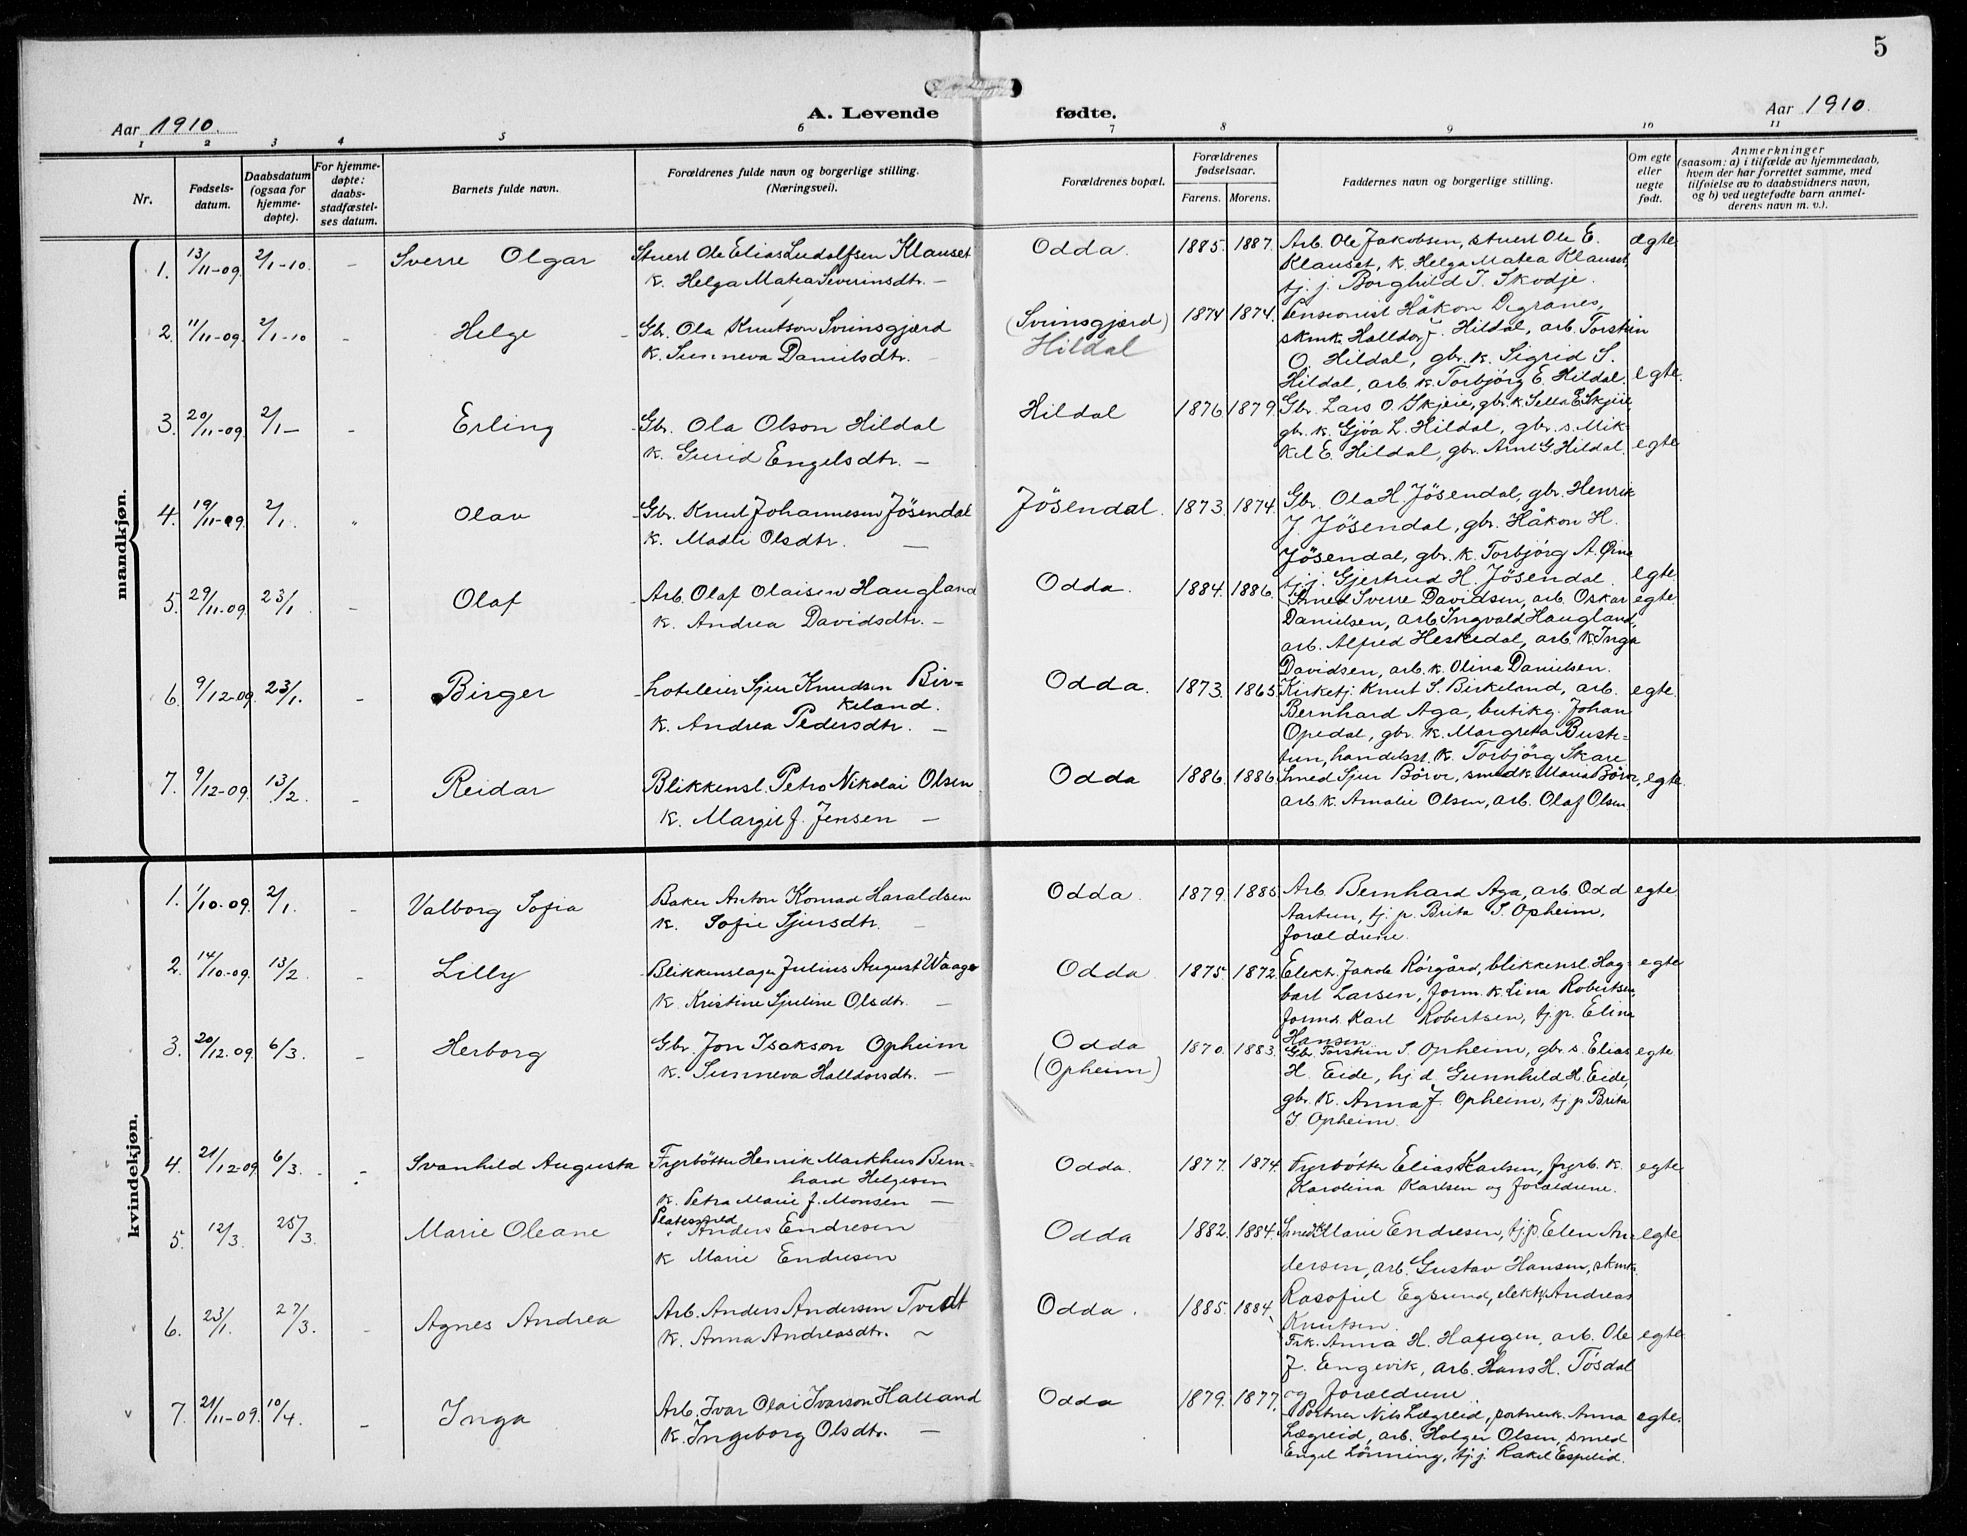 5
A. Levende fødte.
Aar 1910.
Aar 1910.
1 2 3 4 5 6 7 8 9 10 11
Nr.
Fødsels-
datum.
Daabsdatum
(ogsaa for
hjemme-
døpte).
For hjemme-
døpte:
daabs-
stadfæstel-
ses datum.
Barnets fulde navn.
Forældrenes fulde navn og borgerlige stilling.
(Næringsvei).
Forældrenes bopæl.
Forældrenes
fødselsaar.
Farens. Morens.
Faddernes navn og borgerlige stilling.
Om egte
eller
uegte
født.
Anmerkninger
(saasom: a) i tilfælde av hjemmedaab,
hvem der har forrettet samme, med
tilføielse av to daabsvidners navn,
og b) ved uegtefødte barn anmel-
derens navn m. v.).
mandkjøn.
1. 13/11-09. 2/1-10. - Sverre Olgar
Stuert Ole Elias Ludolfsen Klauset
k. Helga Matea Severinsdtr. -
Odda. 1885. 1887.
Arb. Ole Jakobsen, stuert Ole E.
Klauset, k. Helga Matea Klauset,
tj. j. Borghild I. Skodje.
ægte
2. 11/11-09. 2/1-10 - Helge
Gbr. Ola Knutson Svinsgjærd
k. Sunneva Danielsdtr. -
(Svinsgjærd)
Hildal
1874 1874.
Pensionist Håkon Digranes,
skmk. Halldor J. Hildal, arb. Torstein
O. Hildal, gbr. k. Sigrid S.
Hildal, arb. k. Torbjørg E. Hildal.
egte.
3. 20/11-09. 2/1- - Erling
Gbr. Ola Olson Hildal
k. Gurid Engelsdtr. -
Hildal 1876 1879.
Gbr. Lars O. Skjeie, gbr. k. Sella E. Skjeie,
gbr. k. Gjøa L. Hildal, gbr. s. Mik-
kel E. Hildal, gbr. Arne G. Hildal.
egte
4. 19/11-09. 2/1. " Olav
Gbr. Knut Johannesen Jösendal
k. Madli Olsdtr. -
Jösendal. 1873. 1874.
Gbr. Ola H. Jösendal, gbr. Henrik
J. Jösendal, gbr. Håkon H.
Jösendal, gbr. k. Torbjörg A.
tj. j. Gjertrud H. Jösendal.
egte
5. 29/11-09. 23/1. - Olaf
Arb. Olaf Olaisen Haugland
k. Andrea Davidsdtr. -
Odda. 1884. 1886.
Smed Sverre Davidsen, arb. Oskar
Danielsen, arb. Ingvald Haugland,
arb. Alfred Heskedal, arb. k. Inga
Davidsen, arb. k. Olina Danielsen.
egte
6. 9/12-09. 23/1. - Birger
hoteleier Sjur Knudsen Bir-
keland.
k. Andrea Pedersdtr. -
Odda. 1873. 1865.
Kirketj. Knut S. Birkeland, arb.
Bernhard Aga, butikg. Johan
Opedal, gbr. k. Margreta Buste-
tun, handelsst. k. Torbjörg Skare
egte
7. 9/12-09. 13/2. - Reidar
Blikkensl. Petro Nikolai Olsen
k. Margit J. Jensen -
Odda 1886. 1886
Smed Sjur Börve, smedk. Maria Börve,
arb. k. Amalie Olsen, arb. Olaf Olsen
egte.
kvindekjøn.
1. 1/10-09. 2/1. - Valborg Sofia
Baker Anton Konrad Haraldsen
k. Sofie Sjursdtr. -
Odda. 1879. 1885
Arb. Bernhard Aga, arb. Odd
Aartun, tj. p. Brita I. Opheim,
forældrene.
egte
2. 14/10-09. 13/2. - Lilly
Blikkenslager Julius August Waage
k. Kristine Sjuline Olsdtr. -
Odda. 1875. 1872.
Elekt. Jakob Rörgård, blikkensl. Hag-
bart Larsen, form. k. Lina Robertsen,
formd. Karl Robertsen, tj. p. Elina
Hansen
egte
3. 20/12-09. 6/3. - Herborg
Gbr. Jon Isakson Opheim
k. Sunneva Halldorsdtr. -
Odda
(Opheim)
1870. 1883.
Gbr. Torstein I. Opheim, gbr. s. Elias
H. Eide, hj. d. Gunnhild H. Eide,
gbr. k. Anna J. Opheim, tj. p. Brita
I. Opheim.
egte
4. 21/12-09. 6/3. - Svanhild Augusta
Fyrbötter Henrik Markhus Bern-
hard Helgesen
k. Petra Marie J. Monsen -
Odda. 1877. 1874.
Fyrbötter Elias Karlsen, fyrb. k.
Karolina Karlsen og forældrene.
egte
5. 12/3. 25/3. Marie Oleane
Platesmed
Anders Endresen
k Marie Endresen
Odda 1882. 1884.
Smedk. Marie Endresen, tj. p. Elen An-
dersen, arb. Gustav Hansen, skmk.
Rasofiel Egsund, elektr. Andreas
Knutsen.
egte.
6. 23/1. 27/3. - Agnes Andrea
Arb. Anders Andersen Tvedt
k. Anna Andreasdtr. ~
Odda. 1885. 1884.
Frk. Anna H. Haugen, arb. Ole
J. Engevik, arb. Hans H. Tösdal
og forældrene
egte
7. 21/11-09. 10/4. - Inga
Arb. Ivar Olai Ivarson Halland
k. Ingeborg Olsdtr. -
Odda 1879. 1877.
Portner Nils Lægreid, portnerk. Anna
Lægreid, arb. Holger Olsen, smed
Engel Lönning, tj. j. Rakel Espelid.
egte.